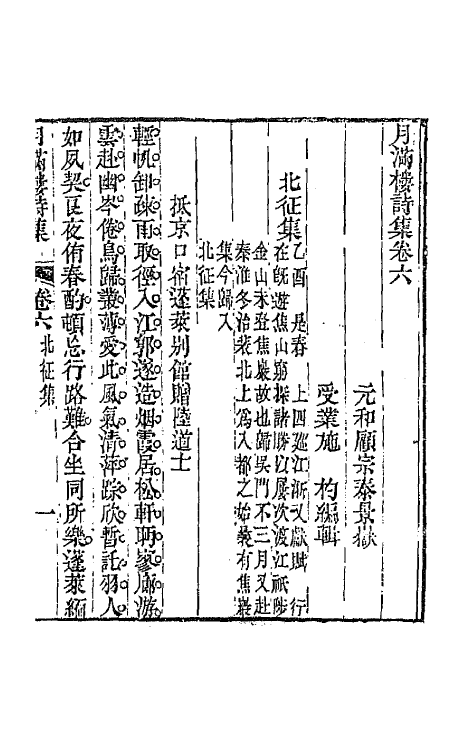 月滿樓詩集卷六
元和顧宗泰景嶽
受業施 杓編輯
北征集
乙酉 是春 上四廵江浙又獻賦 行
在旣遊焦山窮探諸勝以屢次渡江祇陟
金山未登焦巖故也歸吳門不三月又赴
秦淮冬治裝北上爲入都之始裝有焦巖
集今歸入
北征集
抵京口宿蓬萊别館贈陸道士
輕帆卸疎雨取徑入江郭遂造烟霞居松軒聊寥廓游
雲赴幽岑倦鳥歸叢薄愛此風氣清萍踪欣暫託羽人
如夙契良夜侑春酌頓忘行路難合坐同所樂蓬萊緬
月滿樓詩集 卷六 北征集 一